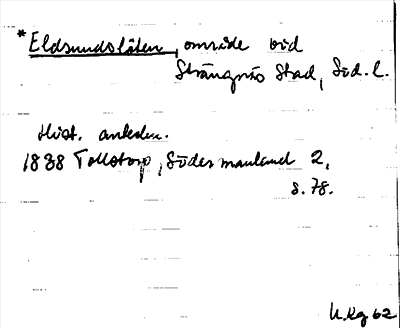 *Eldsundslöten, område vid
Strängnäs Stad, Söd. l.
Hist. anledn.
1838 Tollstorp, Södermanland 2,
s. 78.
U.Kg 62